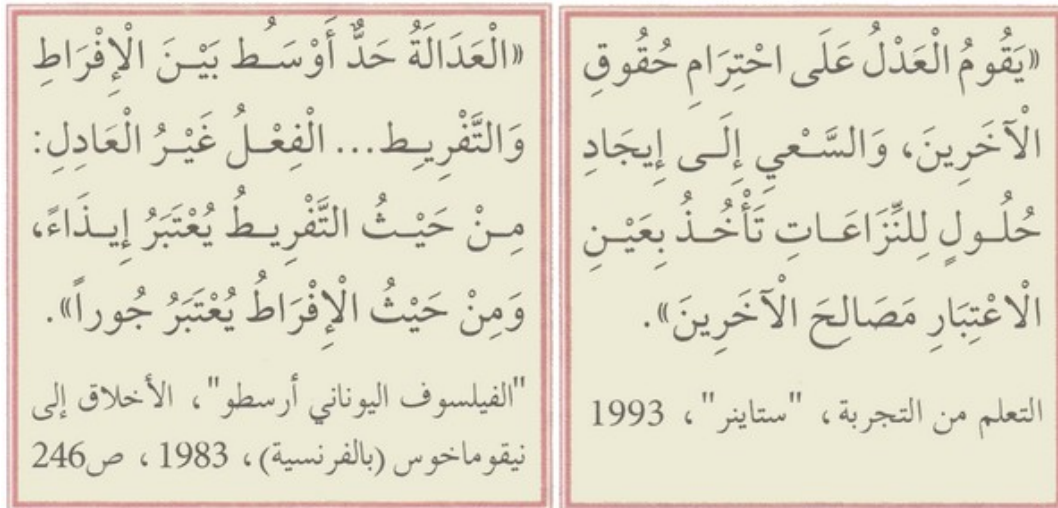 «يَقُومُ الْعَدْلُ عَلَى احْتِرَامِ حُقُوقِ
الْآخَرِينَ، وَالسَّعْيِ إِلَى إِيجَادِ
حُلُولٍ لِلنِّزَاعَاتِ تَأْخُذُ بِعَيْنِ
الْاعْتِبَارِ مَصَالِحَ الْآخَرِينَ».
التعلم من التجربة، "ستاينر"، 1993
«الْعَدَالَةُ حَدٌّ أَوْسَط بَيْنَ الْإِفْرَاطِ
وَالتَّفْرِيطِ... الْفِعْلُ غَيْرُ الْعَادِلِ:
مِنْ حَيْثُ التَّفْرِيطُ يُعْتَبَرُ إِيذَاءً،
وَمِنْ حَيْثُ الْإِفْرَاطُ يُعْتَبَرُ جُوراً».
"الفيلسوف اليوناني أرسطو"، الأخلاق إلى
نيقوماخوس (بالفرنسية)، 1983، ص246